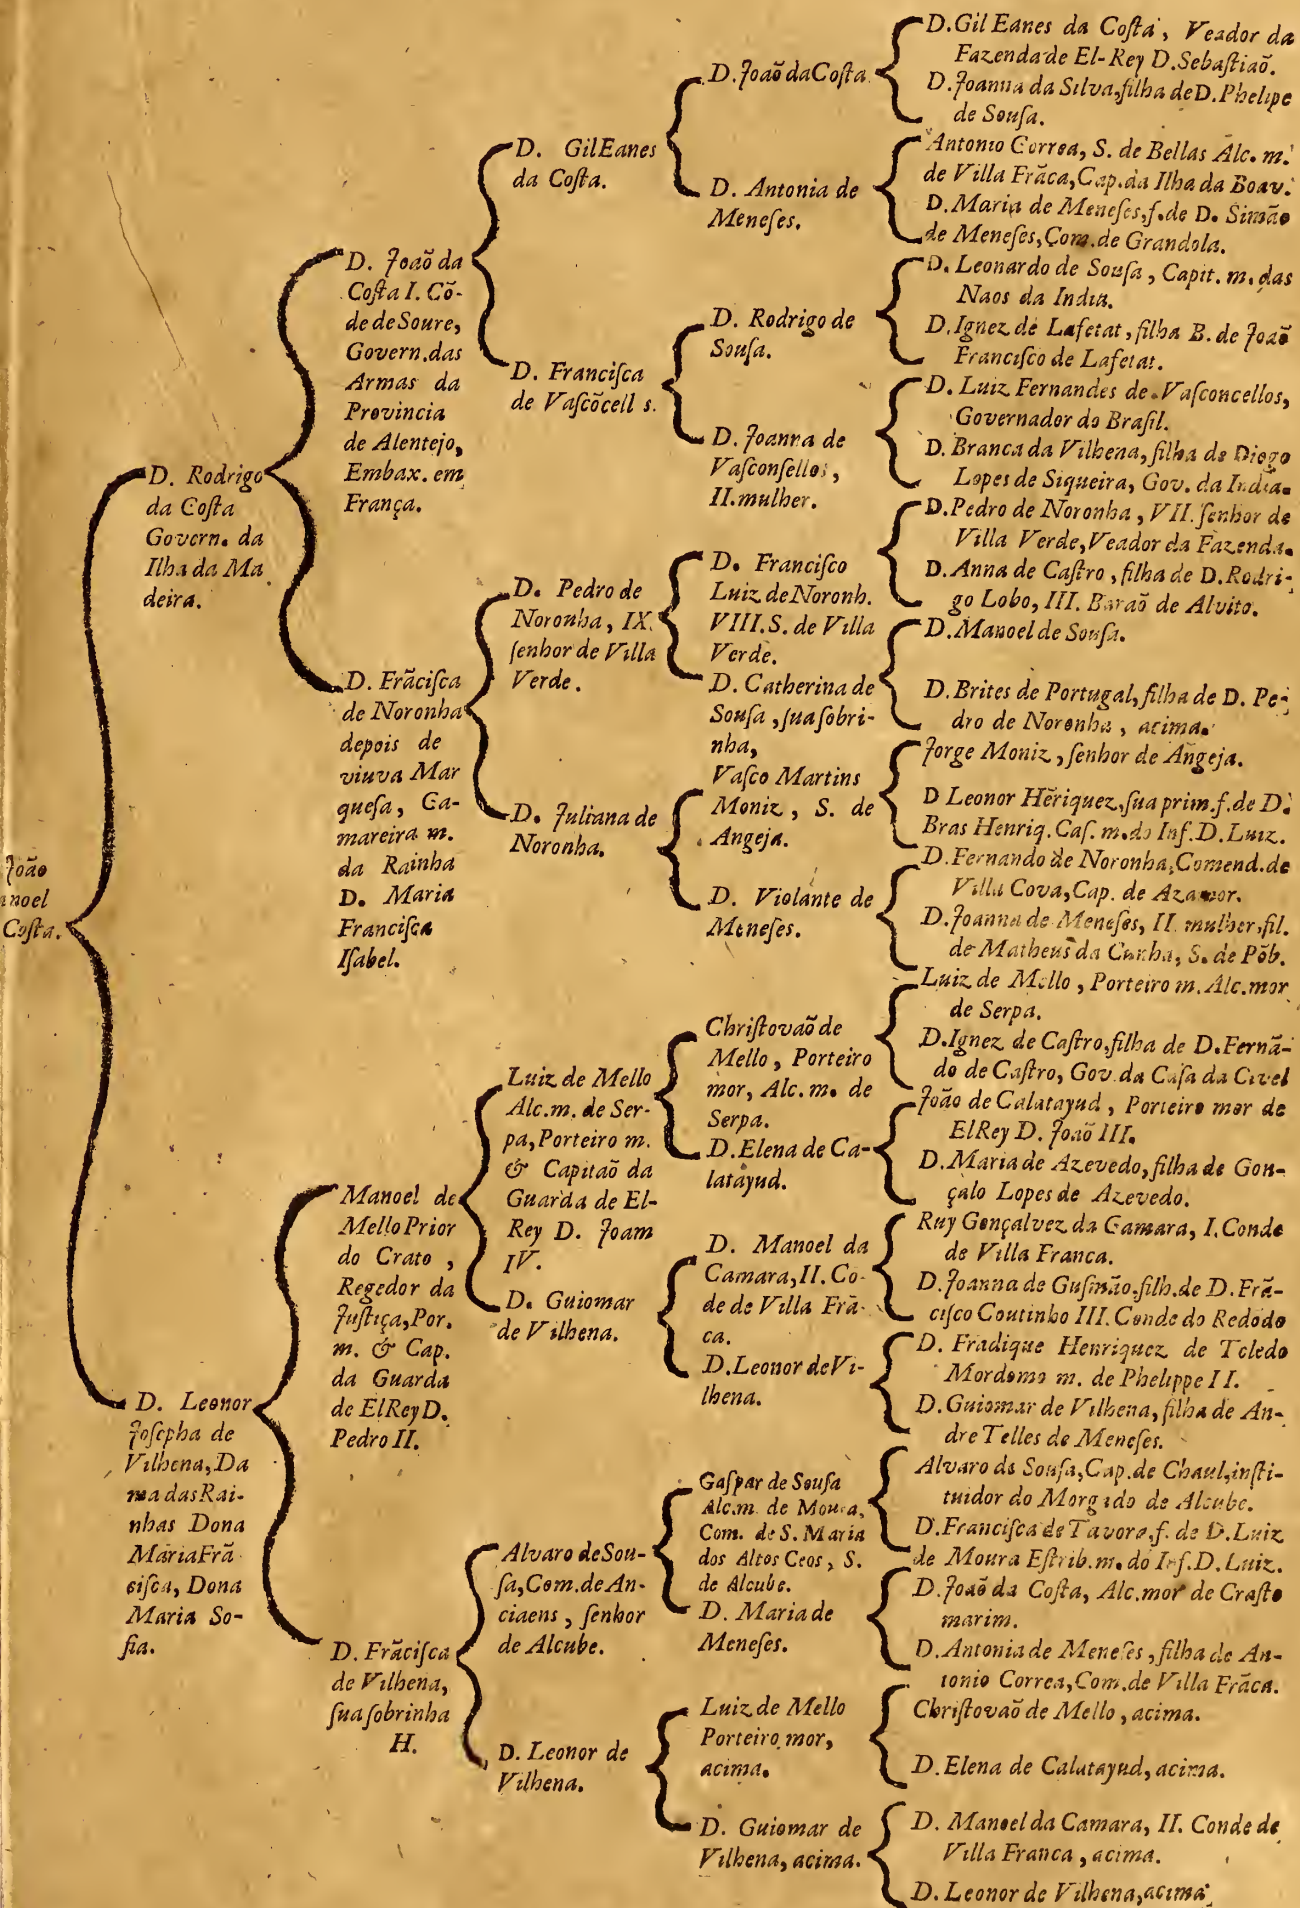 João
anoel
Costa.
D. Rodrigo
da Coſta
Govern. da
Ilha da Ma
deira.
D. Leonor
Joſepha de
Vilhena, Da
ma das Rai-
nhas Dona
Maria Frã
ciſca, Dona
Maria So-
fia.
D. Joaõ da
Coſta I. Cõ-
de de Soure,
Govern. das
Armas da
Provincia
de Alentejo,
Embax. em
França.
D. Frãciſca
de Noronha
depois de
viuva Mar
queſa, Ca-
mareira m.
da Rainha
D. Maria
Franciſca
Iſabel.
Manoel de
Mello Prior
do Crato,
Regedor da
Juſtiça, Por.
m. & Cap.
da Guarda
de ElRey D.
Pedro II.
D. Frãciſca
de Vilhena,
ſua ſobrinha
H.
D. Gil Eanes
da Coſta.
D. Franciſca
de Vaſcõcell s.
D. Pedro de
Noronha, IX.
ſenhor de Villa
Verde.
D. Juliana de
Noronha.
Luiz de Mello
Alc. m. de Ser-
pa, Porteiro m.
& Capitaõ da
Guarda de El-
Rey D. Joam
IV.
D. Guiomar
de Vilhena.
Alvaro de Sou-
ſa, Com. de An-
ciaens, ſenhor
de Alcube.
D. Leonor de
Vilhena.
D. Joaõ da Coſta
D. Antonia de
Meneſes.
D. Rodrigo de
Souſa.
D. Joanna de
Vaſconſellos,
II. mulher.
D. Franciſco
Luiz de Noronh.
VIII. S. de Villa
Verde.
D. Catherina de
Souſa, ſua ſobri-
nha,
Vaſco Martins
Moniz, S. de
Angeja.
D. Violante de
Meneſes.
Chriſtovaõ de
Mello, Porteiro
mor, Alc. m. de
Serpa.
D. Elena de Ca-
latayud.
D. Manoel da
Camara, II. Co-
de de Villa Frã-
ca.
D. Leonor de Vi-
lhena.
Gaſpar de Souſa
Alc. m. de Moura,
Com. de S. Maria
dos Altos Ceos, S.
de Alcube.
D. Maria de
Meneſes.
Luiz de Mello
Porteiro mor,
acima.
D. Guiomar de
Vilhena, acima.
D. Gil Eanes da Coſta, Veador da
Fazenda de El-Rey D. Sebaſtiaõ.
D. Joanna da Silva, filha de D. Phelipe
de Souſa.
Antonio Correa, S. de Bellas Alc. m.
de Villa Frãca, Cap. da Ilha da Boav.
D. Maria de Meneſes, f. de D. Simão
de Meneſes, Com. de Grandola.
D. Leonardo de Souſa, Capit. m. das
Naos da India.
D. Ignez de Lafetat, filha B. de Joaõ
Franciſco de Lafetat.
D. Luiz Fernandes de Vaſconcellos,
Governador do Braſil.
D. Branca da Vilhena, filha de Diogo
Lopes de Siqueira, Gov. da India.
D. Pedro de Noronha, VII. ſenhor de
Villa Verde, Veador da Fazenda.
D. Anna de Caſtro, filha de D. Rodri-
go Lobo, III. Baraõ de Alvito.
D. Manoel de Souſa.
D. Brites de Portugal, filha de D. Pe-
dro de Noronha, acima.
Jorge Moniz, ſenhor de Angeja.
D Leonor Hẽriquez, ſua prim. f. de D.
Bras Henriq. Caſ. m. do Inf. D. Luiz.
D. Fernando de Noronha, Comend. de
Villa Cova, Cap. de Azamor.
D. Joanna de Meneſes, II. mulher, fil.
de Matheus da Cunha, S. de Põb.
Luiz de Mello, Porteiro m. Alc. mor
de Serpa.
D. Ignez de Caſtro, filha de D. Fernã-
do de Caſtro, Gov. da Caſa da Civel
João de Calatayud, Porteiro mor de
ElRey D. Joaõ III.
D. Maria de Azevedo, filha de Gon-
çalo Lopes de Azevedo.
Ruy Gonçalvez da Camara, I. Conde
de Villa Franca.
D. Joanna de Guſmão, filh. de D. Frã-
ciſco Coutinho III. Conde do Redodo
D. Fradique Henriquez de Toledo
Mordomo m. de Phelippe II.
D. Guiomar de Vilhena, filha de An-
dre Telles de Meneſes.
Alvaro de Souſa, Cap. de Chaul, inſti-
tuidor do Morgado de Alcube.
D. Franciſca de Tavora, f. de D. Luiz
de Moura Eſtrib. m. do Inf. D. Luiz.
D. Joaõ da Coſta, Alc. mor de Craſto
marim.
D. Antonia de Meneſes, filha de An-
tonio Correa, Com. de Villa Frãca.
Chriſtovaõ de Mello, acima.
D. Elena de Calatayud, acima.
D. Manoel da Camara, II. Conde de
Villa Franca, acima.
D. Leonor de Vilhena, acima